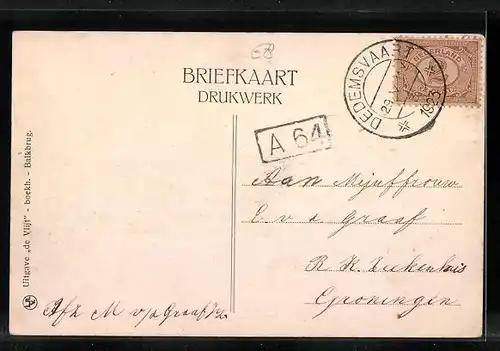 BRIEFKAART
DRUKWERK
DEDEMSVAART
29
1923
NEDERLAND
A 64
Aan Mejuffrouw
E. v d Graaf
R. K. Ziekenhuis
Groningen
Afz M v/d Graaf
Uitgave „de Vlijt" - boekh. - Balkbrug.